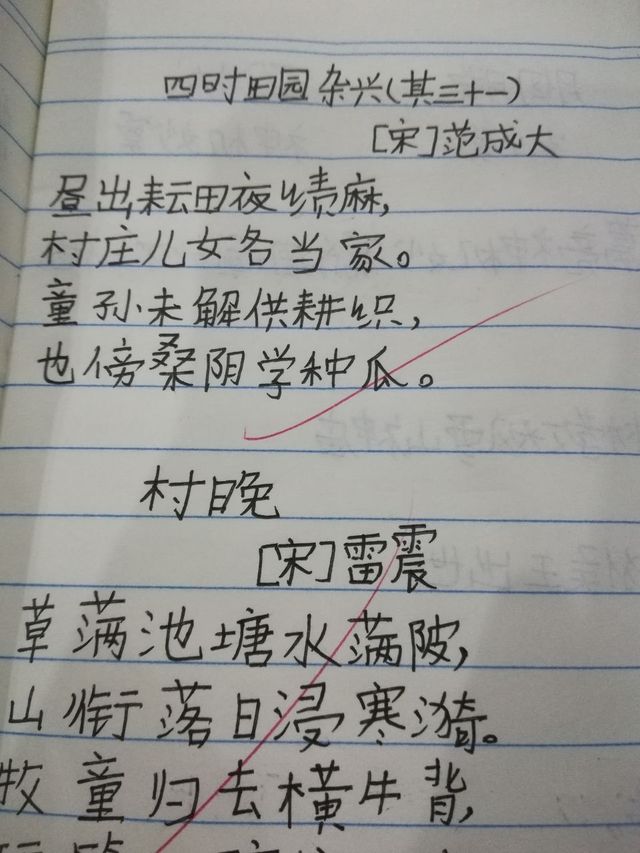 四时田园杂兴(其三十一)
[宋]范成大
昼出耘田夜绩麻,
村庄儿女各当家。
童孙未解供耕织,
也傍桑阴学种瓜。
村晚
[宋]雷震
草满池塘水满陂,
山衔落日浸寒漪。
牧童归去横牛背,